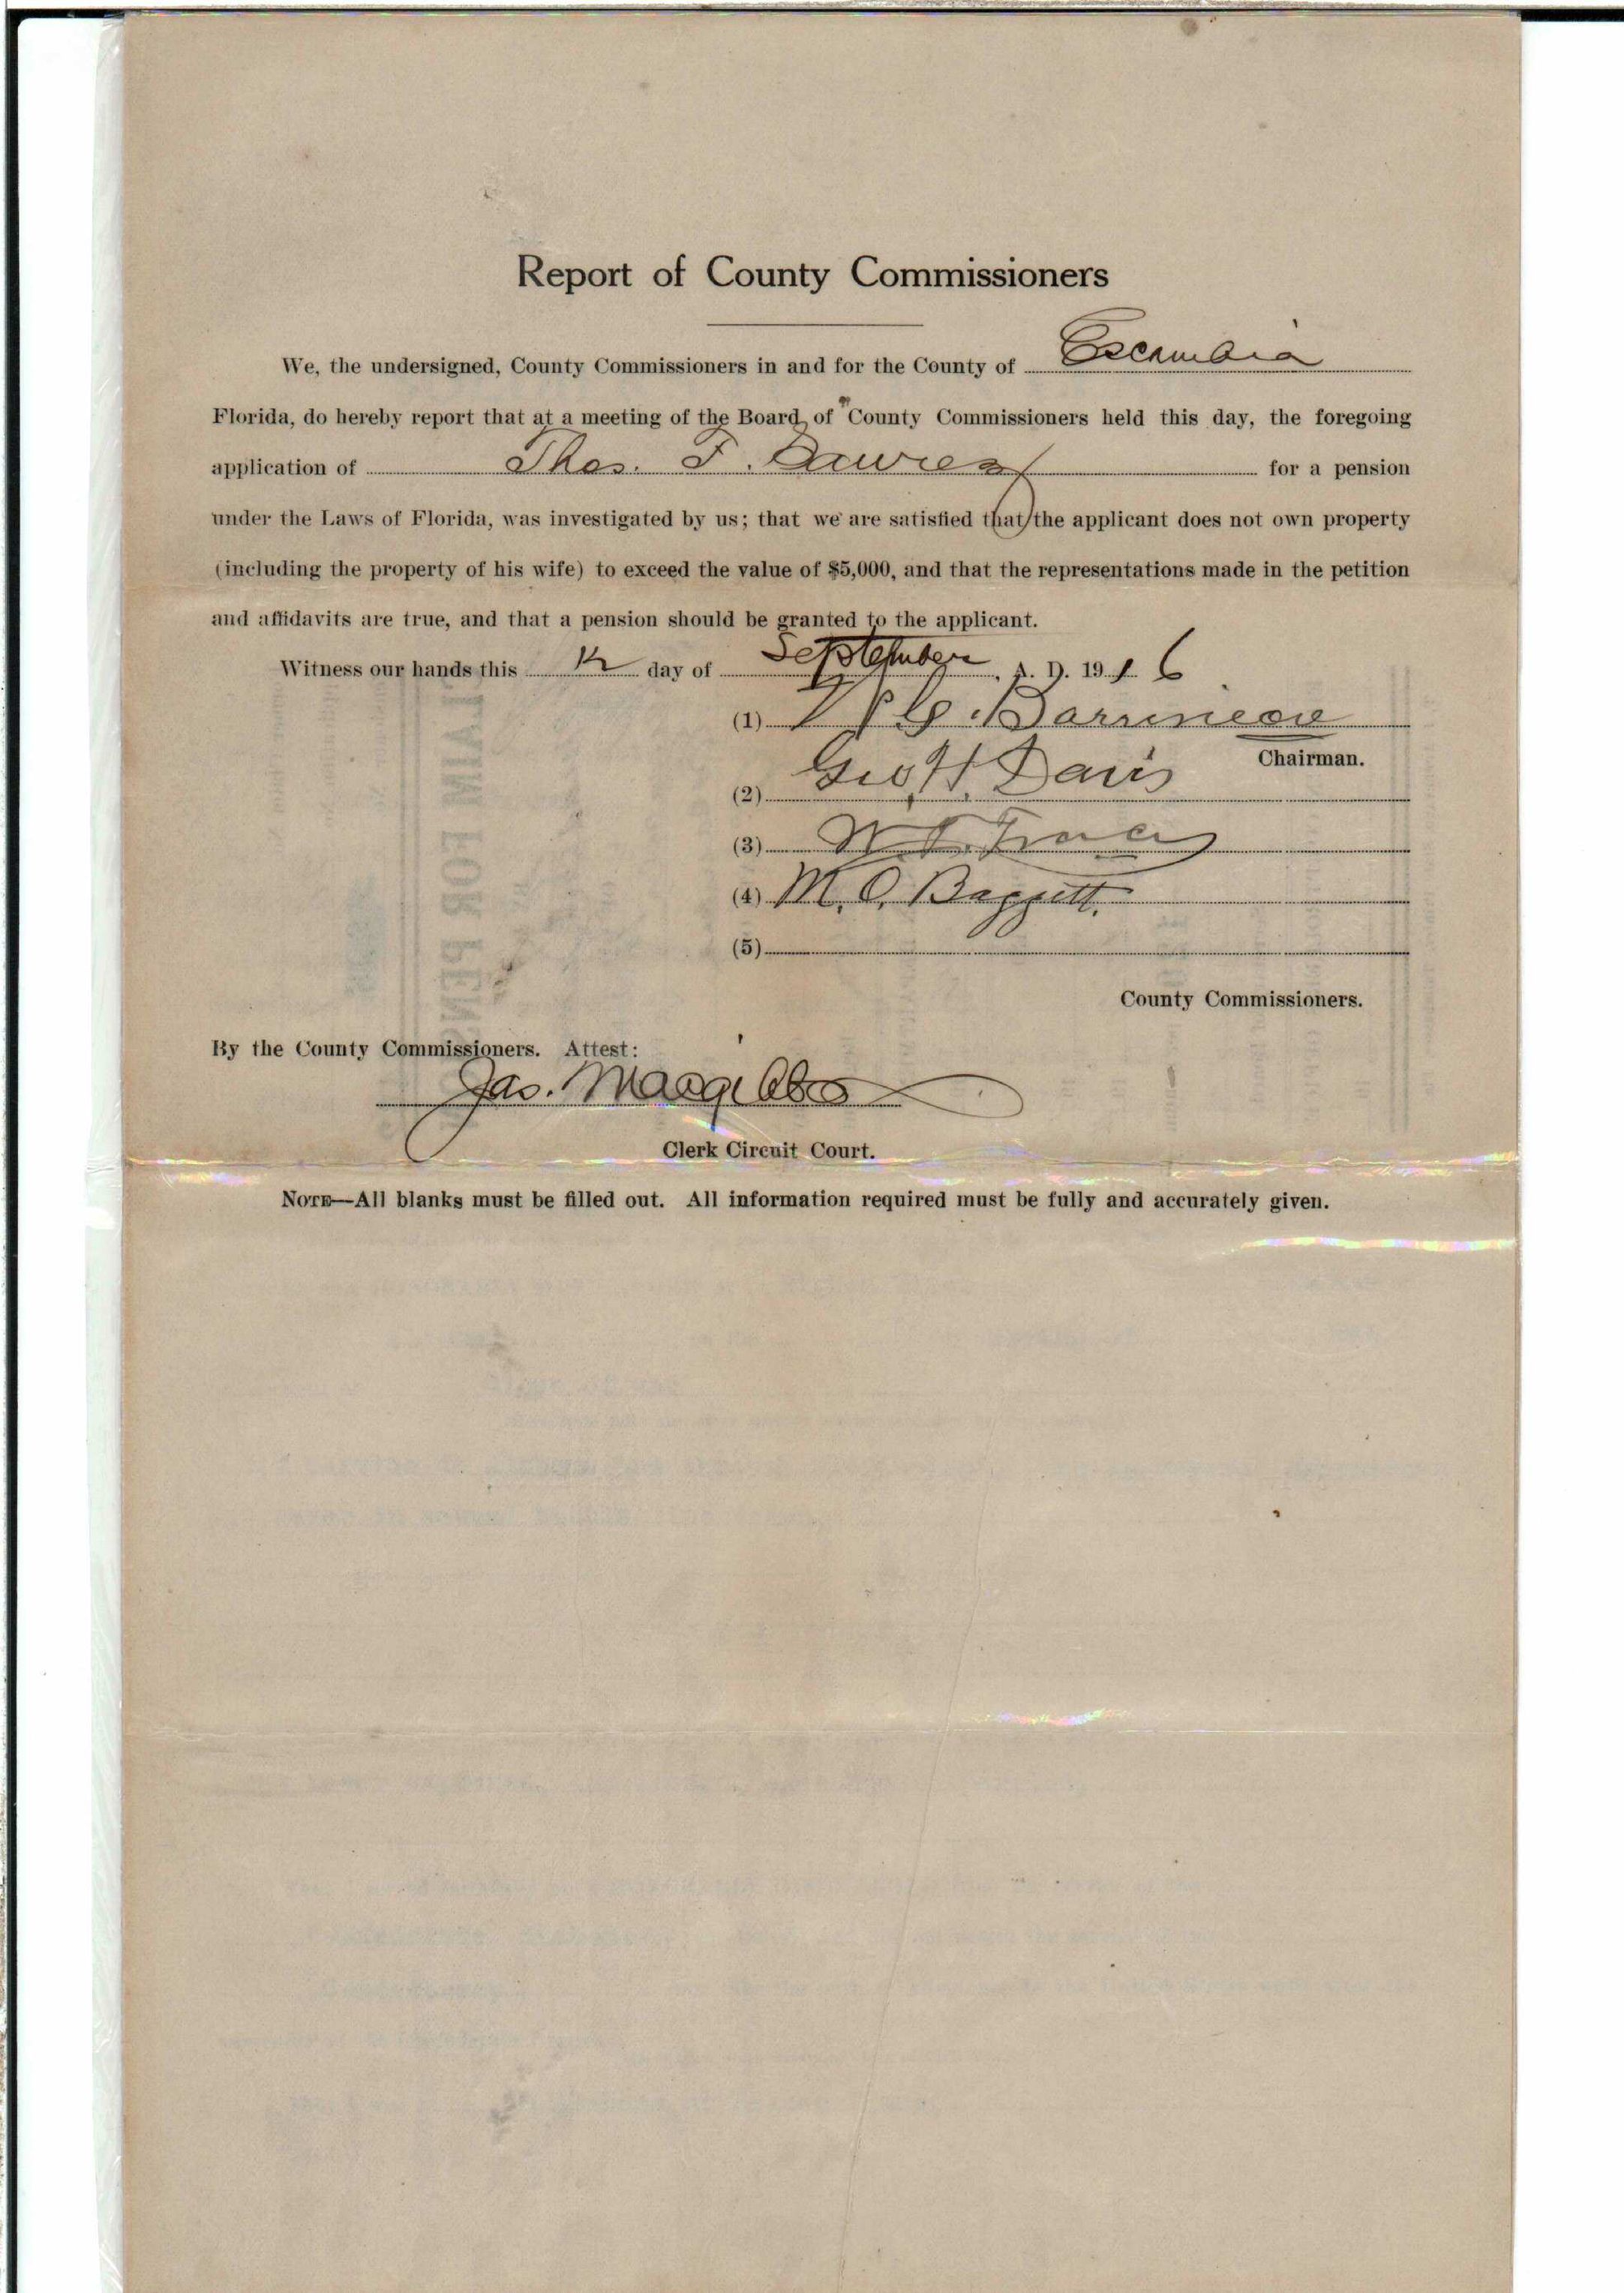 Report of County Commissioners
We, the undersigned, County Commissioners in and for the County of Escambia
Florida, do hereby report that at a meeting of the Board of County Commissioners held this day, the foregoing
application of Thos. F. for a pension
under the Laws of Florida, was investigated by us; that we are satisfied that the applicant does not own property
(including the property of his wife) to exceed the value of $5,000, and that the representations made in the petition
and affidavits are true, and that a pension should be granted to the applicant.
Witness our hands this 12 day of September, A. D. 1916
(1) Barrineau
Chairman.
(2) Geo H. Davis
(3)
(4) M. O. Baggett.
(5)
County Commissioners.
By the County Commissioners. Attest:
Jas. Macgibbon
Clerk Circuit Court.
NOTE—All blanks must be filled out. All information required must be fully and accurately given.